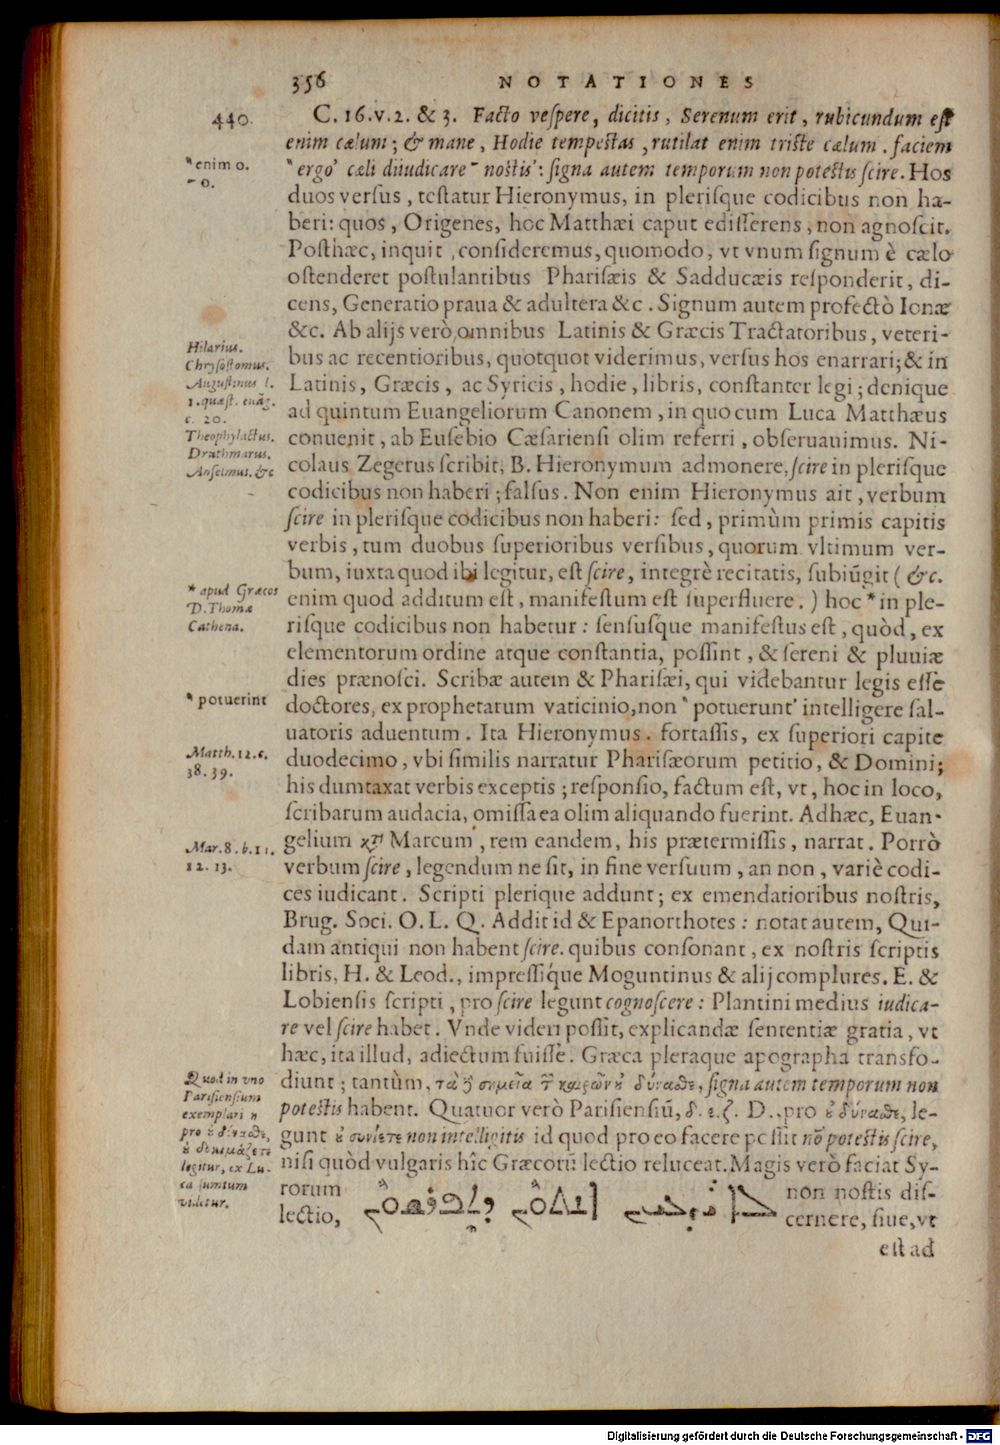 356 NOTATIONES
440. C. 16. v. 2. & 3. Facto veſpere, dicitis, Serenum erit, rubicundum eſt
enim cælum; & mane, Hodie tempeſtas, rutilat enim triſte cælum. faciem
enim o.
o.
ergo cæli diiudicare noſtis: ſigna autem temporum non poteſtis ſcire. Hos
duos verſus, teſtatur Hieronymus, in pleriſque codicibus non ha-
beri: quos, Origenes, hoc Matthæi caput ediſſerens, non agnoſcit.
Poſthæc, inquit, conſideremus, quomodo, vt vnum ſignum è cælo
oſtenderet poſtulantibus Phariſæis & Sadducæis reſponderit, di-
cens, Generatio praua & adultera &c. Signum autem profectò Ionæ
&c. Ab alijs verò, omnibus Latinis & Græcis Tractatoribus, veteri-
bus ac recentioribus, quotquot viderimus, verſus hos enarrari; & in
Latinis, Græcis, ac Syricis, hodie, libris, conſtanter legi; denique
ad quintum Euangeliorum Canonem, in quo cum Luca Matthæus
conuenit, ab Euſebio Cæſarienſi olim referri, obſeruauimus. Ni-
colaus Zegerus ſcribit, B. Hieronymum admonere, ſcire in pleriſque
codicibus non haberi; falſus. Non enim Hieronymus ait, verbum
ſcire in pleriſque codicibus non haberi: ſed, primùm primis capitis
verbis, tum duobus ſuperioribus verſibus, quorum vltimum ver-
bum, iuxta quod ibi legitur, eſt ſcire, integrè recitatis, ſubiūgit (&c.
enim quod additum eſt, manifeſtum eſt ſuperfluere.) hoc * in ple-
riſque codicibus non habetur: ſenſuſque manifeſtus eſt, quòd, ex
elementorum ordine atque conſtantia, poſſint, & ſereni & pluuiæ
dies prænoſci. Scribæ autem & Phariſæi, qui videbantur legis eſſe
doctores, ex prophetarum vaticinio, non potuerunt intelligere ſal-
uatoris aduentum. Ita Hieronymus. fortaſſis, ex ſuperiori capite
duodecimo, vbi ſimilis narratur Phariſæorum petitio, & Domini;
his dumtaxat verbis exceptis; reſponſio, factum eſt, vt, hoc in loco,
ſcribarum audacia, omiſſa ea olim aliquando fuerint. Adhæc, Euan-
gelium Marcum, rem eandem, his prætermiſſis, narrat. Porrò
verbum ſcire, legendum ne ſit, in fine verſuum, an non, variè codi-
ces iudicant. Scripti plerique addunt; ex emendatioribus noſtris,
Brug. Soci. O. L. Q. Addit id & Epanorthotes: notat autem, Qui-
dam antiqui non habent ſcire. quibus conſonant, ex noſtris ſcriptis
libris, H. & Leod., impreſſíque Moguntinus & alij complures. E. &
Lobienſis ſcripti, pro ſcire legunt cognoſcere: Plantini medius iudica-
re vel ſcire habet. Vnde videri poſſit, explicandæ ſententiæ gratia, vt
hæc, ita illud, adiectum fuiſſe. Græca pleraque apographa transfo-
diunt; tantùm, ſigna autem temporum non
poteſtis habent. Quatuor verò Pariſienſiū, δ. ε. ζ. D., pro ȣ δύναϑε, le-
gunt ȣ συνίετε non intelligitis id quod pro eo facere poſſit nō poteſtis ſcire,
niſi quòd vulgaris hîc Græcorū lectio reluceat. Magis verò faciat Sy-
rorum
lectio,
non noſtis diſ-
cernere, ſiue, vt
eſt ad
Hilarius.
Chryſoſtomus.
Auguſtinus l.
1. quæſt. euāg.
c. 20.
Theophylactus.
Druthmarus.
Anſelmus. &c
* apud Græcos
D. Thomæ
Cathena.
potuerint
Matth. 12. c.
38. 39.
Mar. 8. b. 11.
12. 13.
Quod in vno
Pariſienſium
exemplari η
pro ȣ δύναϑε,
ȣ δοκιμάζετε
legitur, ex Lu-
ca ſumtum
videtur.
Digitalisierung gefördert durch die Deutsche Forschungsgemeinschaft - DFG